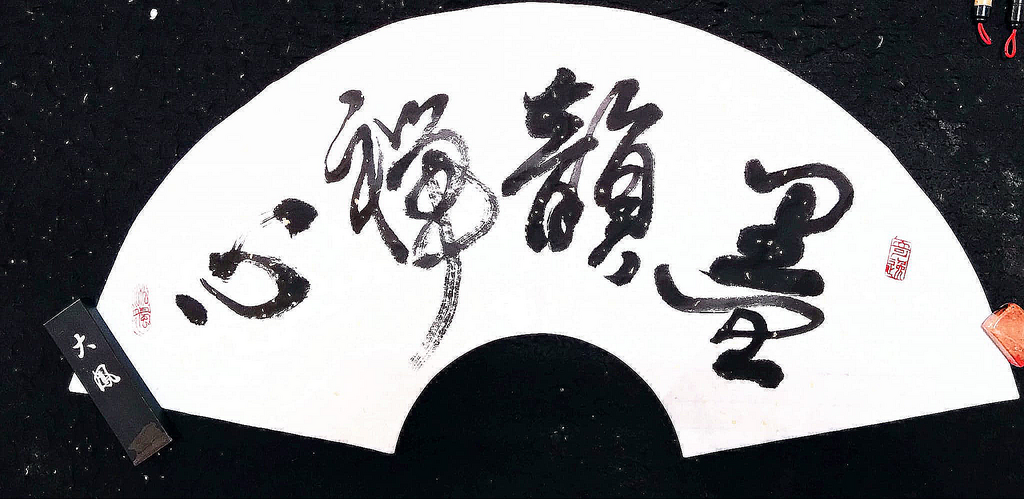 墨韻禪心
大鳳